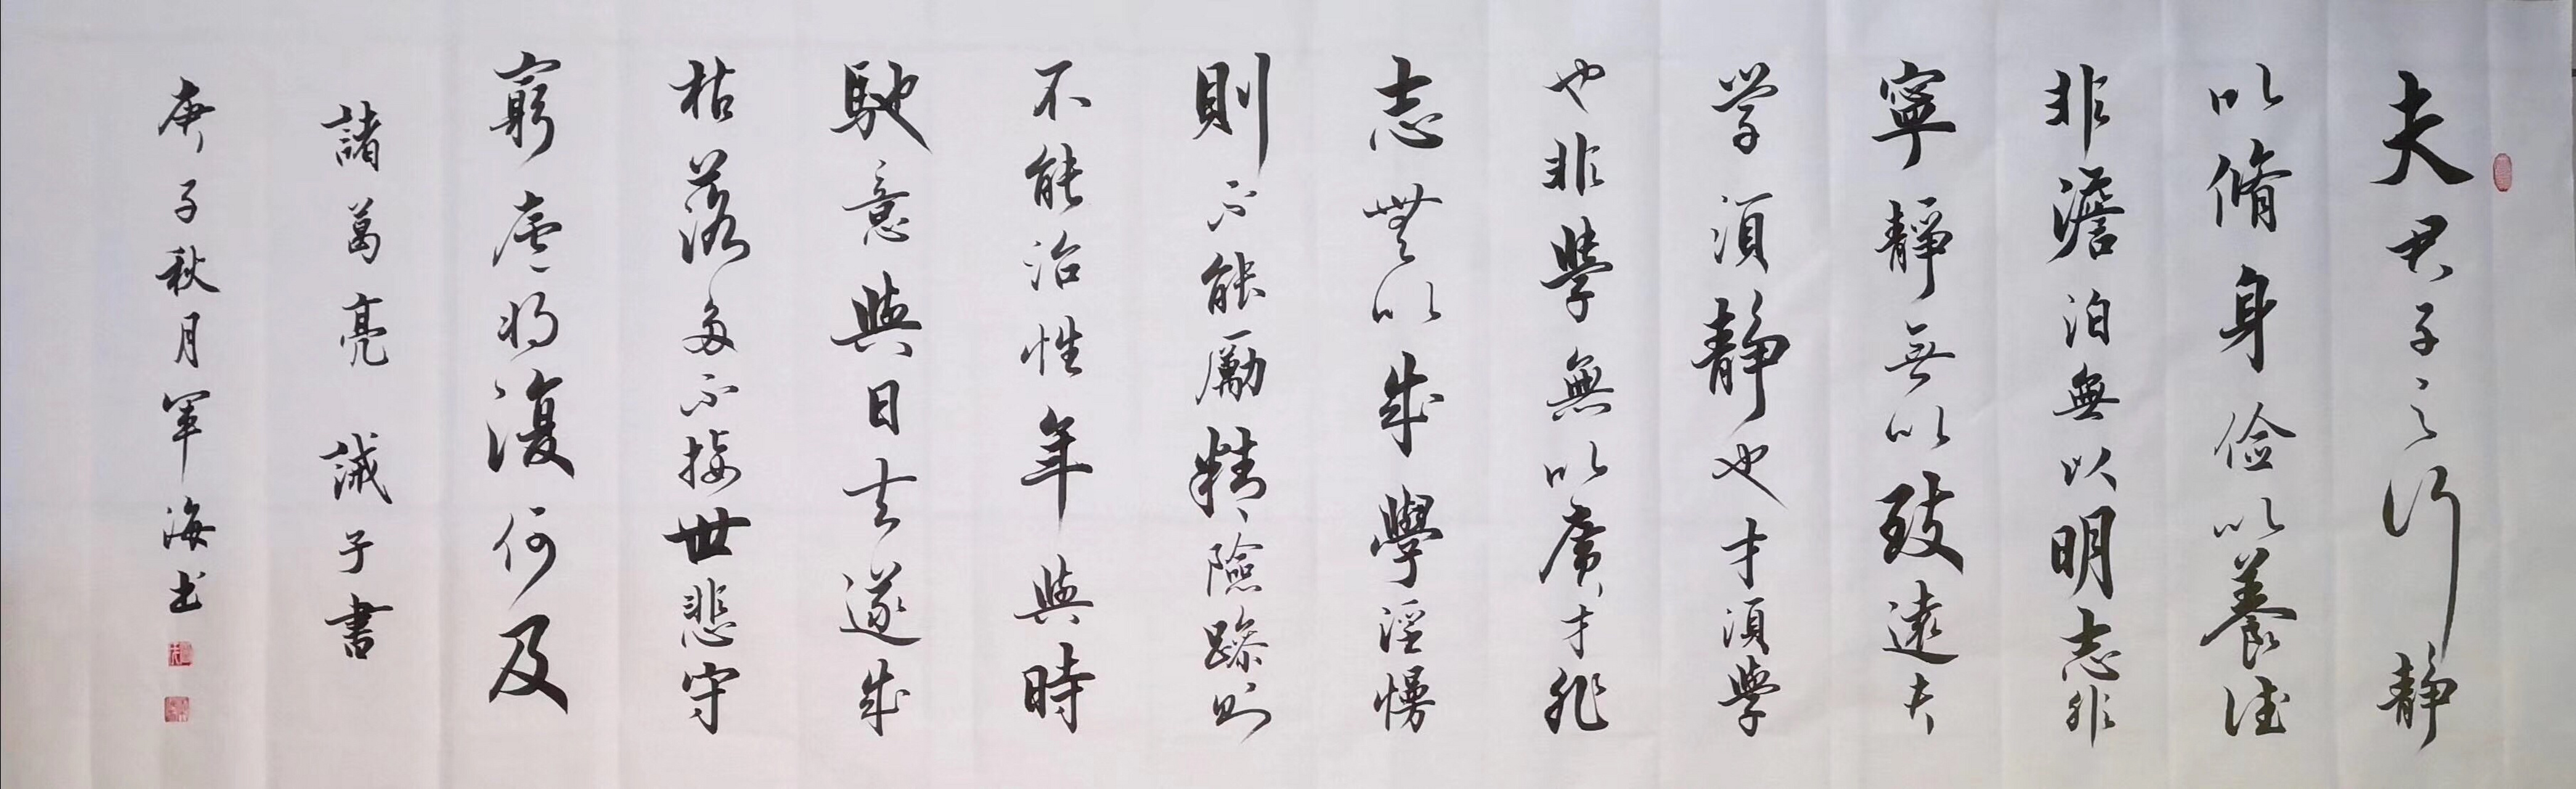 夫君子之行静
以脩身俭以養德
非澹泊無以明志非
寧靜無以致遠夫
学須静也才須學
也非學無以廣才非
志無以成學淫慢
則不能勵精險躁則
不能治性年與時
馳意與日去遂成
枯落多不接世悲守
窮廬将復何及
諸葛亮 誡子書
庚子秋月军海书